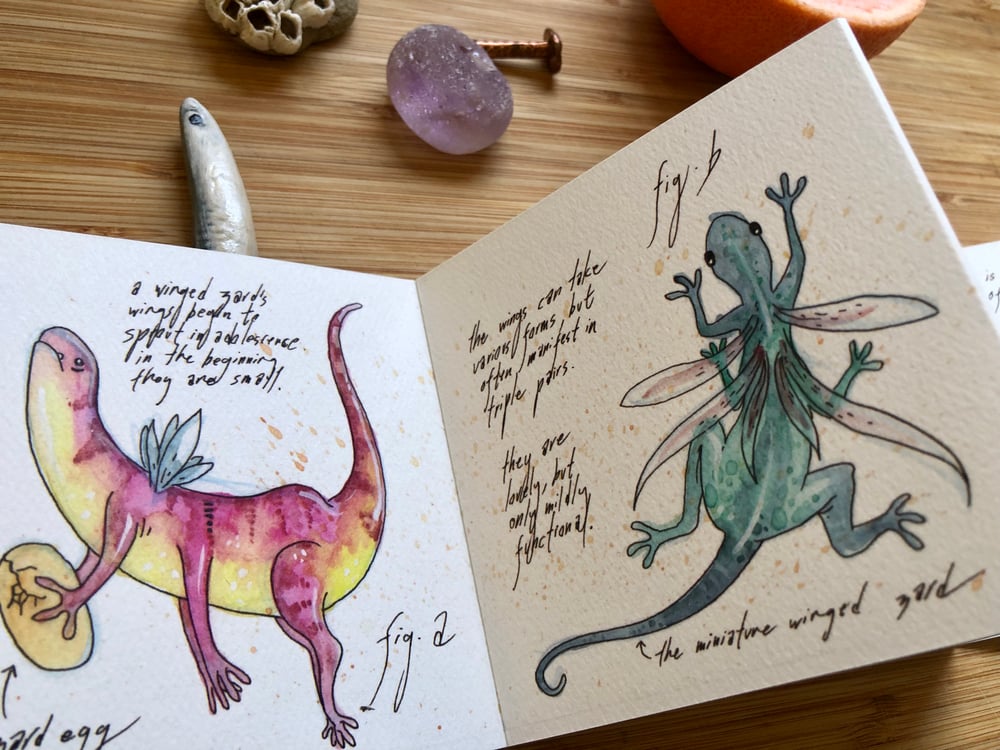 a winged zard's
wings begin to
sprout in adolescence
in the beginning
they are small.
fig. a
egg
fig. b
the wings can take
various forms but
often manifest in
triple pairs.
they are
lovely, but
only mildly
functional.
the miniature winged zard
is